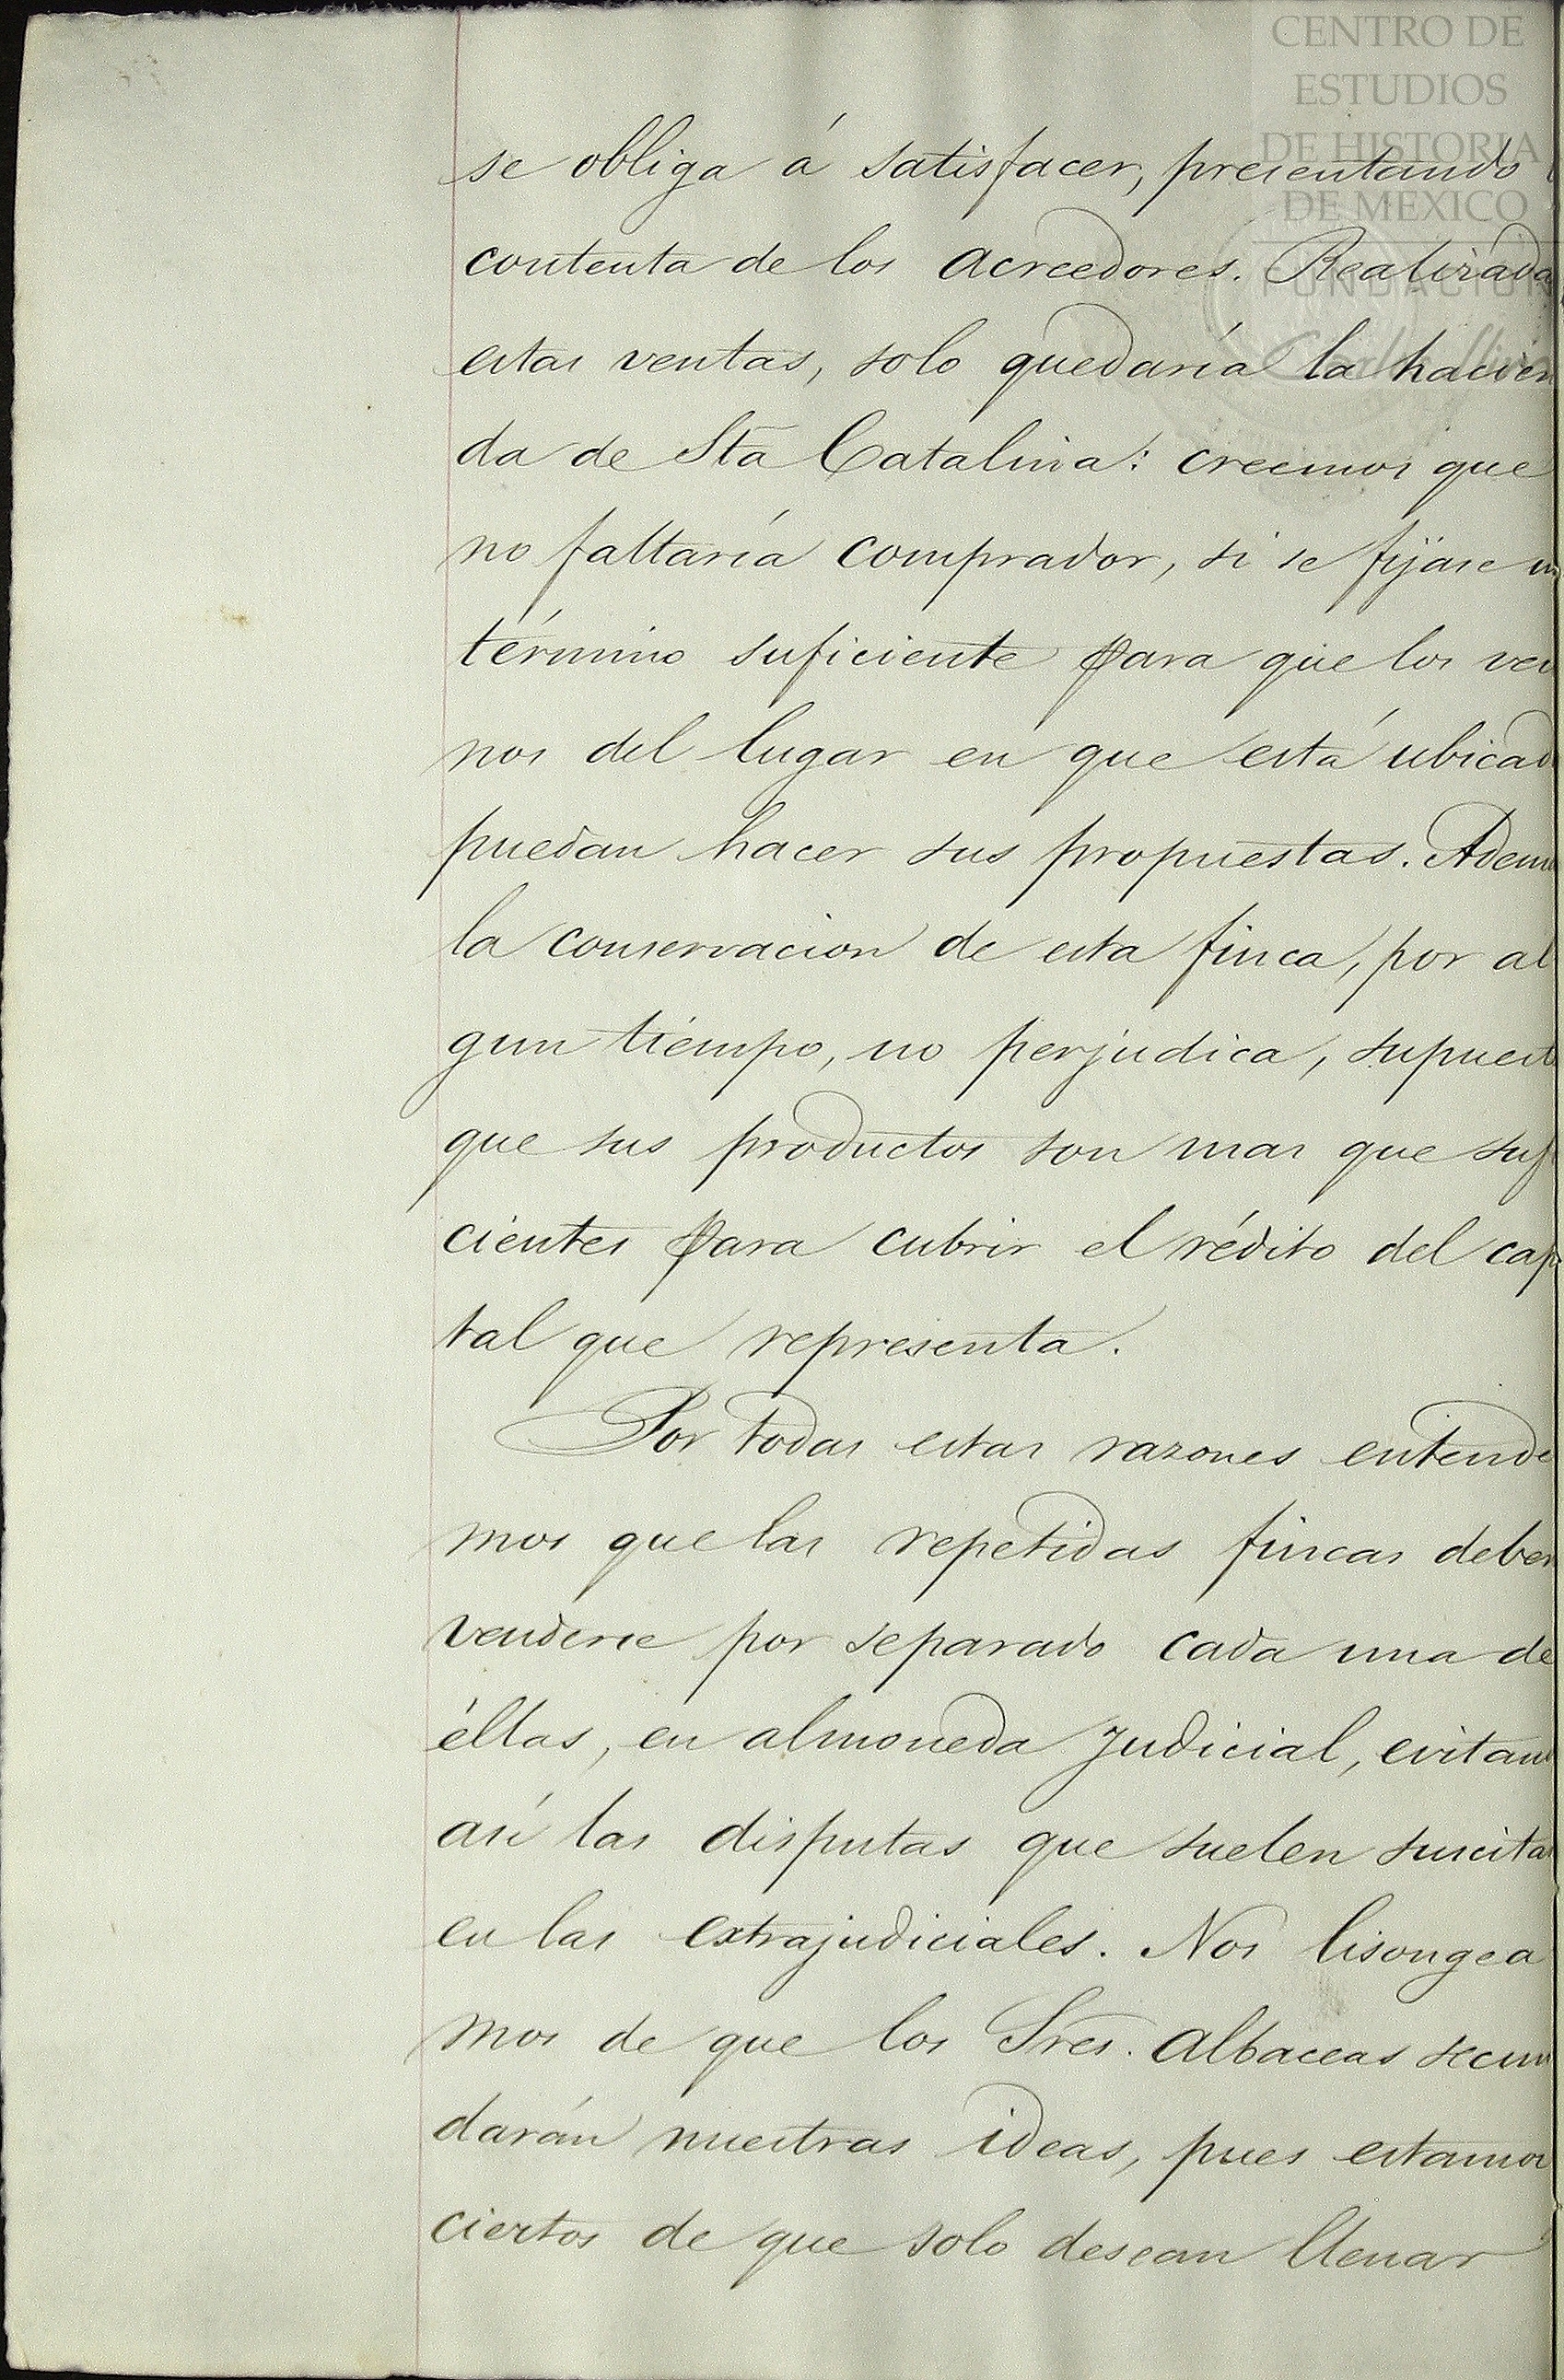 CENTRO DE
ESTUDIOS
DE HISTORIA
DE MEXICO
FUNDACION
Carlos Slim
se obliga á satisfacer, presentando
contenta de los acreedores. Realizada
estas ventas, solo quedaría la hacien
da de Sta Catalina: creemos que
no faltaría comprador, si se fijase un
término suficiente para que los veci
nos del lugar en que está ubicad
puedan hacer sus propuestas. Adem
la conservacion de esta finca, por al
gun tiempo, no perjudica, supuest
que sus productos son mas que sufi
cientes para cubrir el rédito del capi
tal que representa.
Por todas estas razones entende
mos que las repetidas fincas deben
venderse por separado cada una de
éllas, en almoneda judicial, evitand
asi las disputas que suelen suscitar
en las extrajudiciales. Nos lisongea
mos de que los Sres. albaceas secun
darán nuestras ideas, pues estamos
ciertos de que solo desean llenar